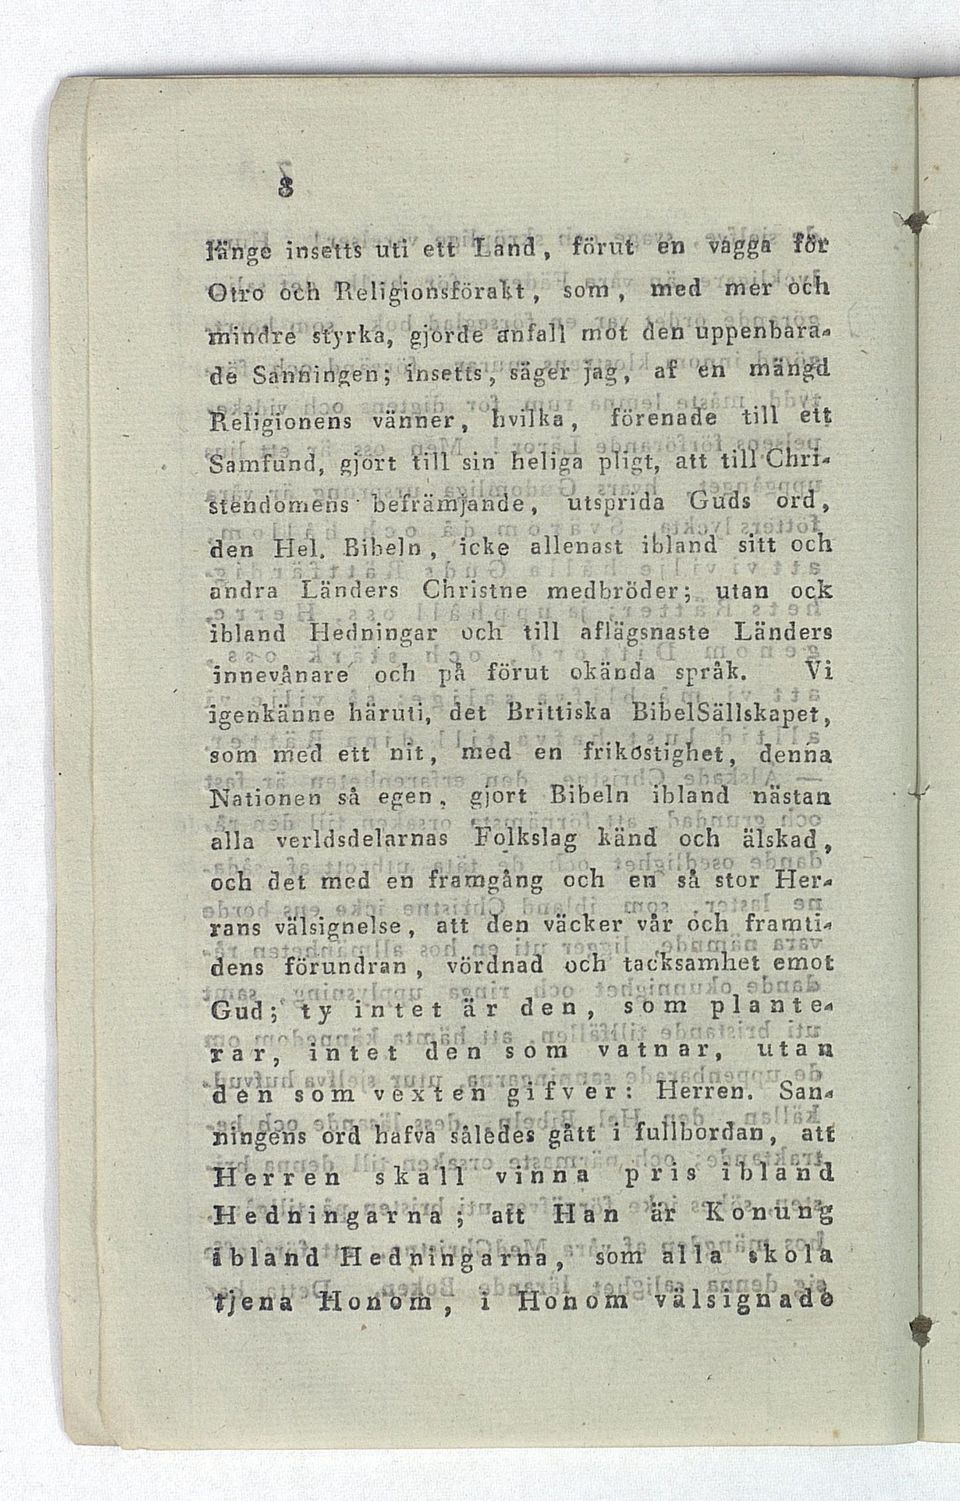 8
länge insetts uti ett Land, förut en vagga för
Otro och Religionsförakt, som, med mer och
mindre styrka, gjorde anfall mot den uppenbara-
de Sanningen; insetts, säger jag, af en mängd
Religionens vänner, hvilka, förenade till ett
Samfund, gjort till sin heliga pligt, att till Chri-
stendomens befrämjande, utsprida Guds ord,
den Hel. Bibeln, icke allenast ibland sitt och
andra Länders Christne medbröder; utan ock
ibland Hedningar och till aflägsnaste Länders
innevånare och på förut okända språk. Vi
igenkänne häruti, det Brittiska BibelSällskapet,
som med ett nit, med en frikostighet, denna
Nationen så egen, gjort Bibeln ibland nästan
alla verldsdelarnas Folkslag känd och älskad,
och det med en framgång och en så stor Her-
rans välsignelse, att den väcker vår och framti-
dens förundran, vördnad och tacksamhet emot
Gud; ty intet är den, som plante-
rar, intet den som vatnar, utan
den som vexten gifver: Herren. San-
ningens ord hafva således gått i fullbordan, att
Herren skall vinna pris ibland
Hedningarna; att Han är Konung
ibland Hedningarna, som alla skola
tjena Honom, i Honom välsignade